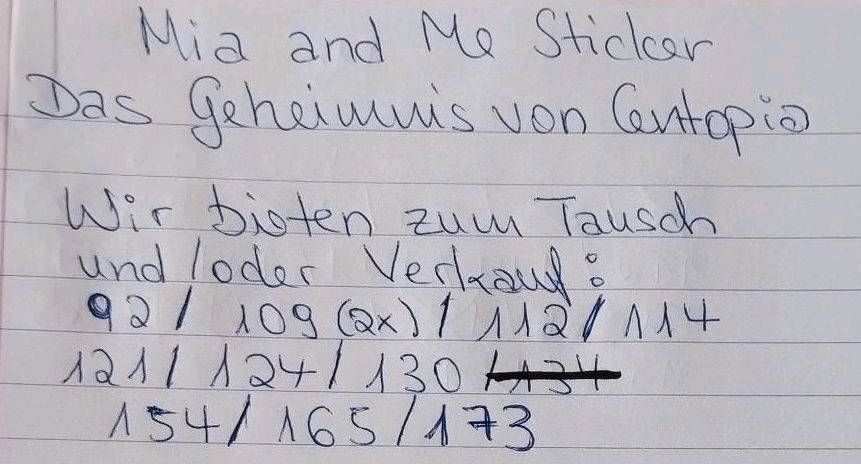 Mia and Me Sticker
Das Geheimnis von Centopia
Wir bieten zum Tausch
und/oder Verkauf:
92/ 109 (2x)/ 112/ 114
121/ 124/ 130 /134
154/ 165/ 173